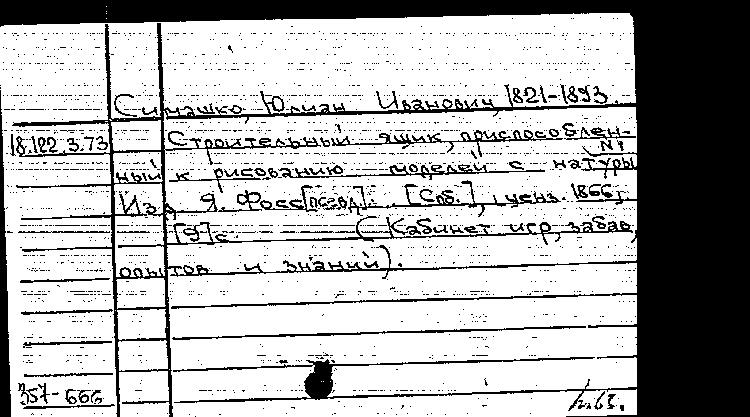 Симашко, Юлиан Иванович, 1821-1893.
18.122.3.73 Строительный ящик, приспособлен-
ный к рисованию моделей с натуры
Изд. Я. Фосс [псевд]. [Спб.], ценз. 1866,
[9]с (Кабинет игр, забав,
опытов и знаний).
357-666